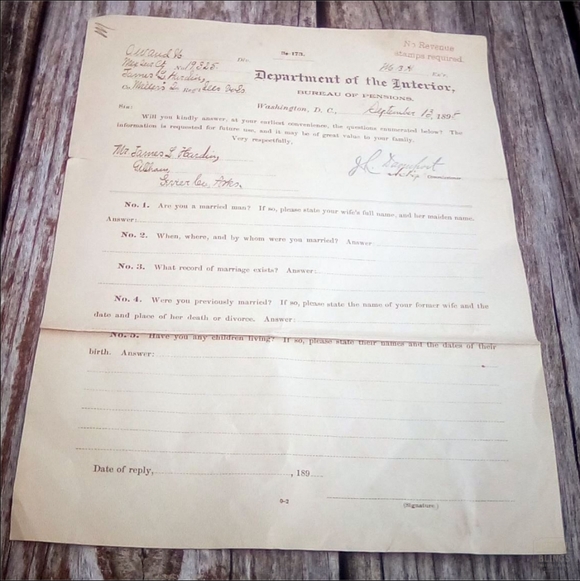 No Revenue
stamps required.
No. 173.
Department of the Interior,
BUREAU OF PENSIONS,
Washington, D. C., September 13, 1898
SIR:
Will you kindly answer, at your earliest convenience, the questions enumerated below? The
information is requested for future use, and it may be of great value to your family.
Very respectfully,
Mr James L Hardin
No. 1. Are you a married man? If so, please state your wife's full name, and her maiden name.
Answer:
No. 2. When, where, and by whom were you married? Answer:
No. 3. What record of marriage exists? Answer:
No. 4. Were you previously married? If so, please state the name of your former wife and the
date and place of her death or divorce. Answer:
No. 5. Have you any children living? If so, please state their names and the dates of their
birth. Answer:
Date of reply, , 189
(Signature.)